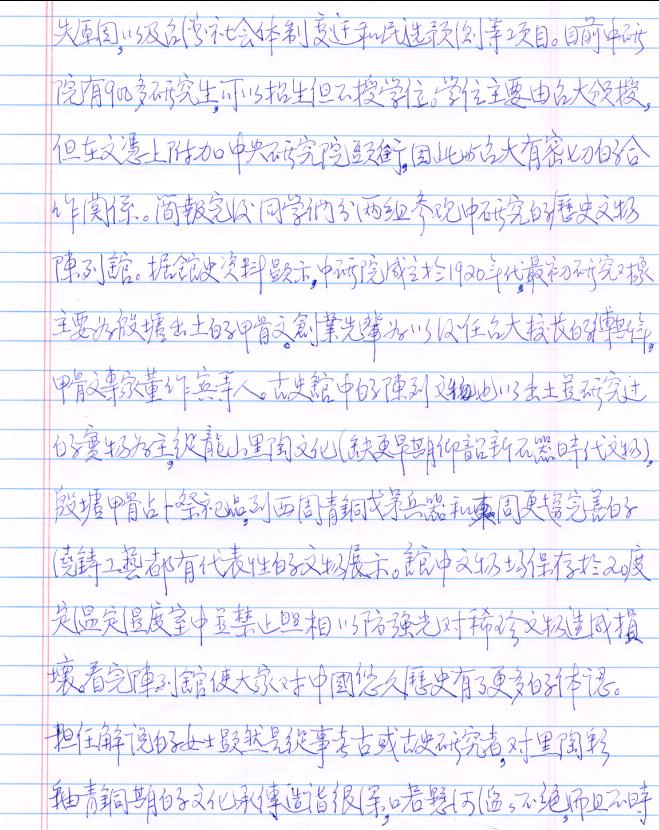 失原因,以及台湾社会体制变迁和民选預測等工項目。目前中研
院有900多研究生,可以招生但不授学位。学位主要由台大頒授,
但在文憑上附加中央研究院頭銜,因此与台大有密切的合
作関係。簡報完後同学们分两組参观中研究的歷史文物
陳列館。据館史資料顕示,中研院成立於1920年代,最初研究对象
主要为殷墟出土的甲骨文。創業先輩为以後任台大校长的傅斯年,
甲骨文專家董作宾等人。古史館中的陳列文物也以出土並研究过
的實物为主,從龍山黑陶文化(缺更早期仰韶新石器時代文物),
殷墟甲骨占卜祭祀品,到西周青銅戈等兵器和東周更趨完善的
澆鋳工藝都有代表性的文物展示。館中文物均保存於20度
定温定湿度室中並禁止照相以防强光对稀珍文物造成損
壞。看完陳列館使大家对中國悠久歷史有了更多的体认。
担任解说的女士顕然是從事考古或古史研究者,对黑陶彩
釉青銅期的文化承傳造诣很深,口若懸河滔々不绝,而且不時